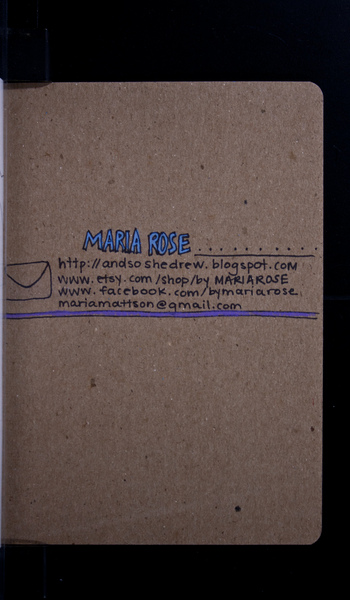 MARIA ROSE ..............
http://andsoshedrew.blogspot.com
www.etsy.com/shop/byMARIAROSE
www.facebook.com/bymariarose
mariamattson@gmail.com